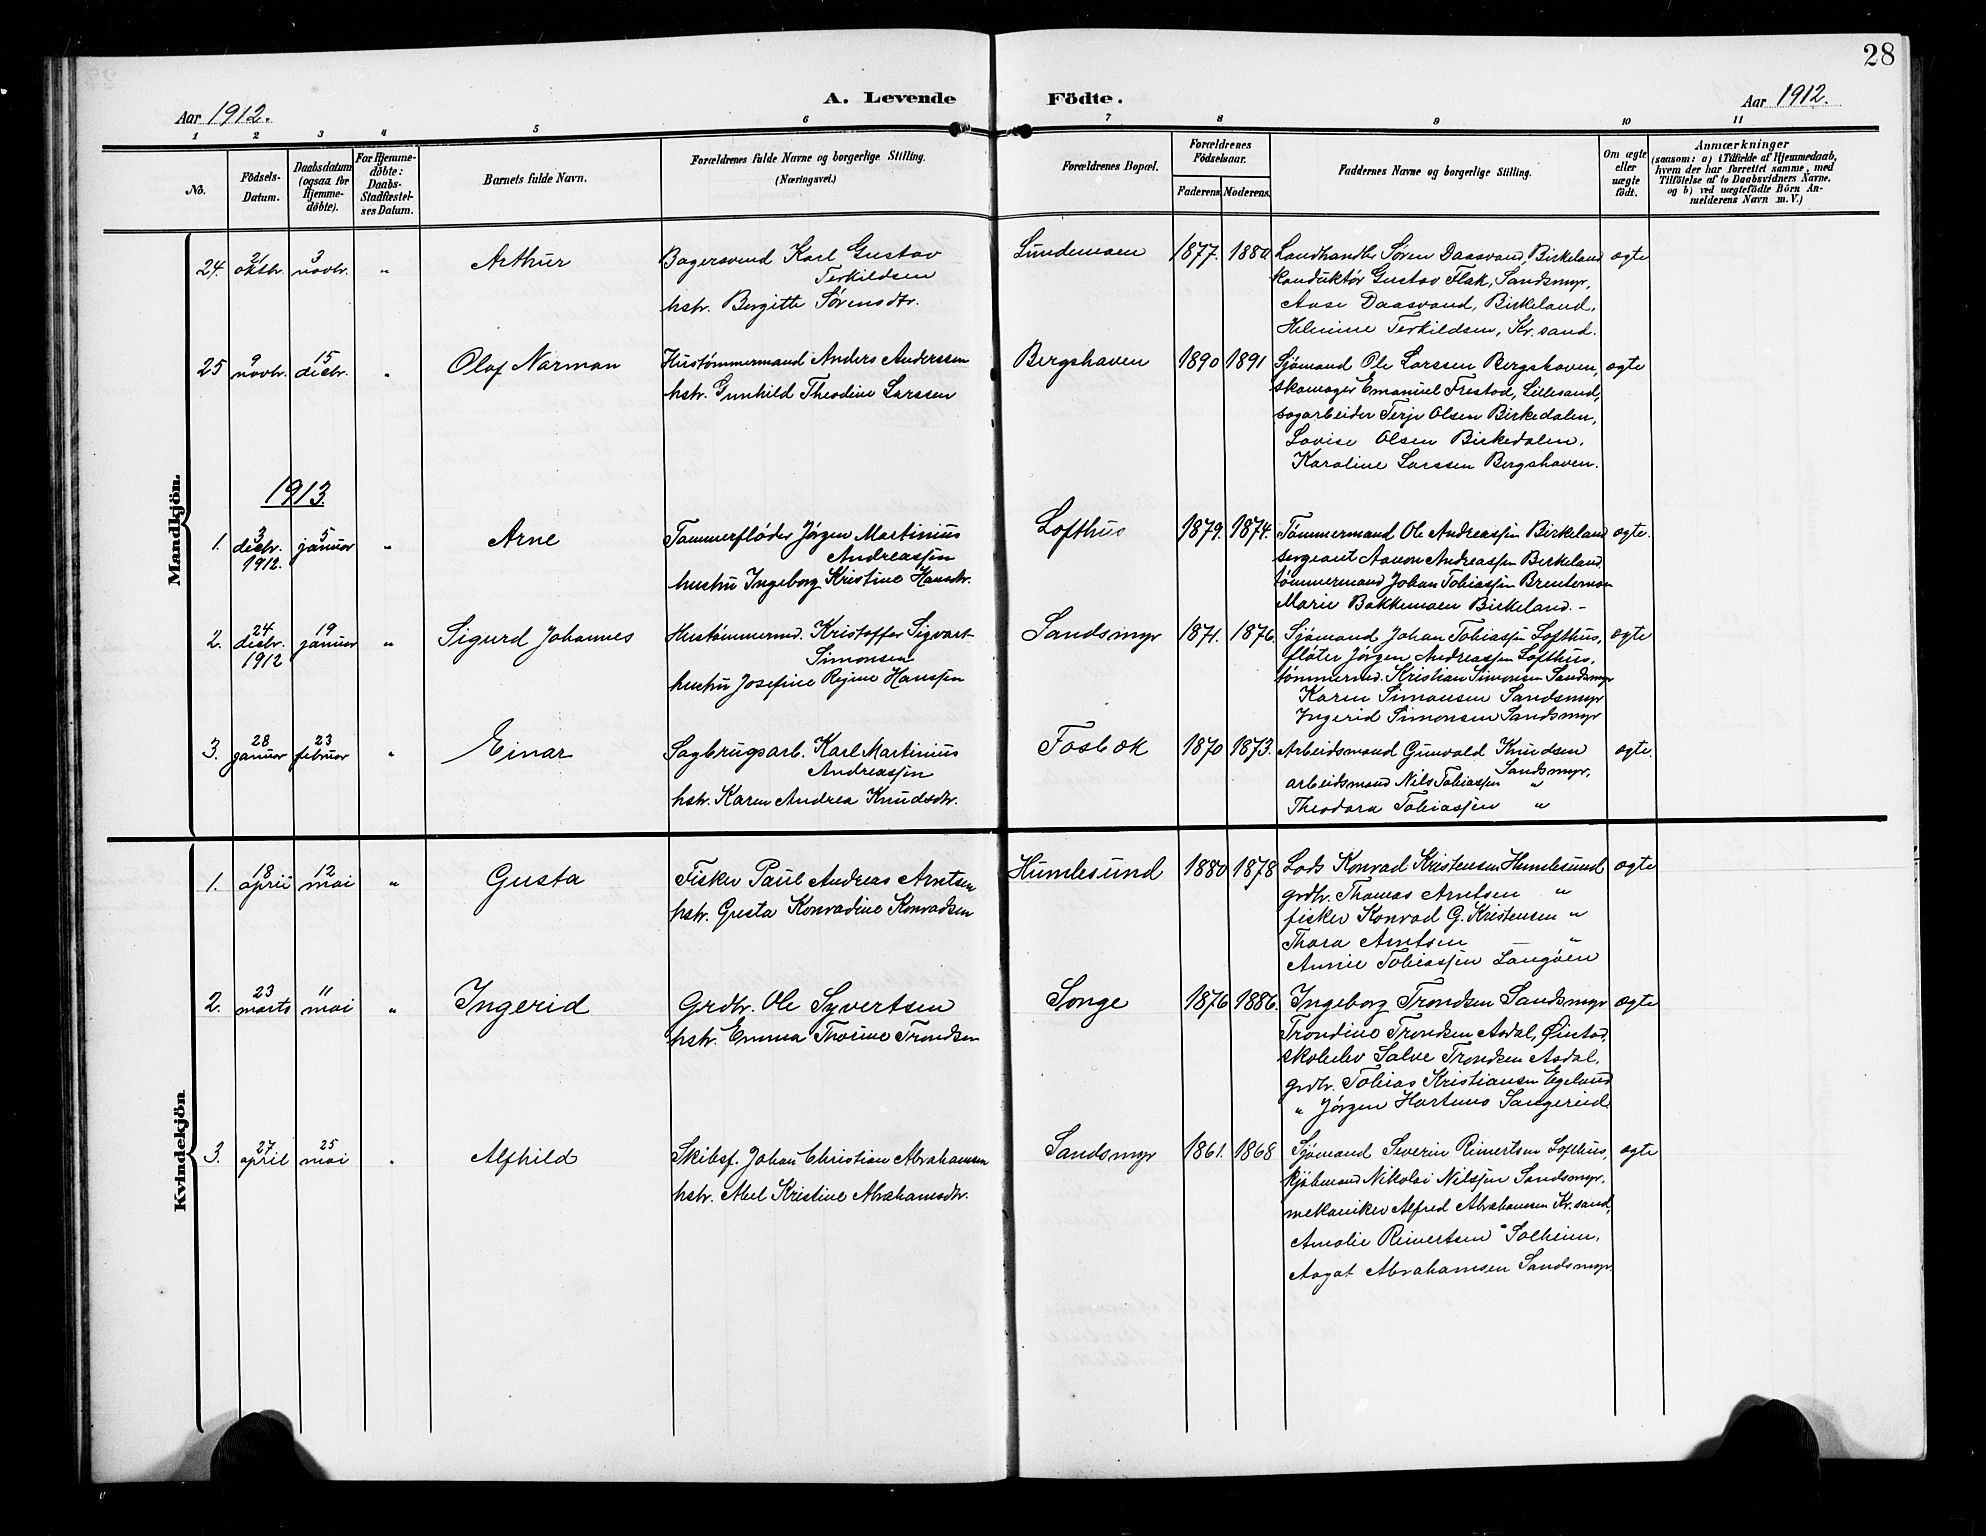 28
Aar 1912.
A. Levende
Födte.
Aar 1912.
1 2 3 4 5 6 7 8 9 10 11
No.
Födsels-
Datum.
Daabsdatum
(ogsaa for
Hjemme-
döbte).
For Hjemme-
döbte:
Daabs-
Stadfæstel-
ses Datum.
Barnets fulde Navn.
Forældrenes fulde Navne og borgerlige Stilling.
(Næringsvei.)
Forældrenes Bopæl.
Forældrenes
Födselsaar.
Faderens. Moderens.
Faddernes Navne og borgerlige Stilling.
Om ægte
eller
uægte
födt.
Anmærkninger
(saasom: a) i Tilfælde af Hjemmedaab,
hvem der har forrettet samme, med
Tilföielse af to Daabsvidners Navne.
og b) ved uægtefödte Börn An-
melderens Navn m. V.)
Mandkjön.
24. 21 oktbr. 3 novbr. "
Arthur
Bagersvend Karl Gustav
Terkildsen
hstr. Bergitte Sørensdtr.
Lundemoen
1877. 1880
Landhandler Søren Daasvand, Birkeland
konduktør Gustav Flak, Sandsmyr,
Aase Daasvand, Birkeland,
Helmine Terkildsen, Kr.sand.
ægte
25 9 novbr. 15 decbr. "
Olaf Narman
Hustømmermand Anders Anderssen
hstr. Gunhild Theodine Larssen
Bergshaven
1890 1891
Sjømand Ole Larssen Bergshaven,
skomager Emanuel Frestad, Lillesand,
sagarbeider Terje Olsen Birkedalen,
Lovise Olsen Birkedalen,
Karoline Larssen Bergshaven.
ægte
1913
1. 3 decbr. 1912. 5 januar "
Arne
Tømmerfløder Jørgen Martinius
Andreassen
hustru Ingeborg Kristine Hansdtr.
Lofthus
1879. 1874.
Tømmermand Ole Andreassen Birkeland
sergeant Aanon Andreassen Birkeland
tømmermand Johan Tobiassen Brentemoen
Marie Bakkemoen Birkeland. -
ægte.
2. 24 decbr. 1912 19 januar "
Sigurd Johannes
Hustømmermd. Kristoffer Sigvart
Simonsen
hustru Josefine Regine Hanssen
Sandsmyr
1871. 1876.
Sjømand Johan Tobiassen Lofthus,
fløter Jørgen Andreassen Lofthus,
tømmermd. Kristian Simonsen Sandsmyr
Karen Simonsen Sandsmyr
Ingerid Simonsen Sandsmyr
ægte
3. 28 januar 23 februar "
Einar
Sagbrugsarb. Karl Martinius
Andreassen
hstr. Karen Andrea Knudsdtr.
Fosbæk
1870 1873.
Arbeidsmand Gunvald Knudsen
Sandsmyr,
arbeidsmand Nils Tobiassen "
Theodora Tobiassen "
ægte.
Kvindekjön
1. 18 april 12 mai "
Gusta
Fisker Paul Andreas Arntsen
hstr. Gusta Konradine Konradsen
Humlesund
1880 1878
Lods Konrad Kristensen Humlesund
grdbr. Thomas Arntsen "
fisker Konrad G. Kristensen "
Thora Arntsen "
Annie Tobiassen Langøen
ægte
2. 23 marts 11 mai "
Ingerid
Grdbr. Ole Syvertsen
hstr. Emma Thorine Trondsen
Songe
1876 1886.
Ingeborg Trondsen Sandsmyr
Trondine Trondsen Asdal, Øiestad,
skoleelev Salve Trondsen Asdal,
grdbr. Tobias Kristiansen Egeland
" Jørgen Hartens Sangereid
ægte
3. 27 april 25 mai "
Alfhild
Skibsf. Johan Christian Abrahamsen
hstr. Abel Kristine Abrahamsdtr.
Sandsmyr
1861. 1868
Sjømand Severin Reinertsen Lofthus,
kjøbmand Nikolai Nilssen Sandsmyr,
mekaniker Alfred Abrahamsen Kr.sand,
Amalie Reinertsen Solheim,
Aagot Abrahamsen Sandsmyr.
ægte